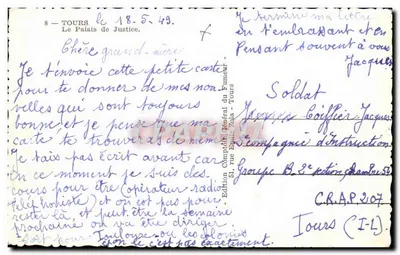 8 - TOURS
Le Palais de Justice.
le 18.5.49.
Chère grand-mère
Je t'envoie cette petite carte
pour te donner de mes nou
velles qui sont toujours
bonne et je pense que ma
carte te trouvera de même
Je t'ais pas écrit avant car
en ce moment je suis des
cours pour être (opérateur radio
téléphoniste) et on est pas pour
rester là et peut être la semaine
prochaine on va être diriger
Toulouse ou les colonies
on le c'est pas exactement.
Je termine ma lettre
en t'embrassant et en
Pensant souvent à vous
Jacques
Edition Comptoir Général du Fumeur
51, rue - Tours
Soldat
Coiffier Jacques
compagnie d'Instruction
Groupe B. 2e section chambre 52
C.R.A.P 207
Tours (I-L)